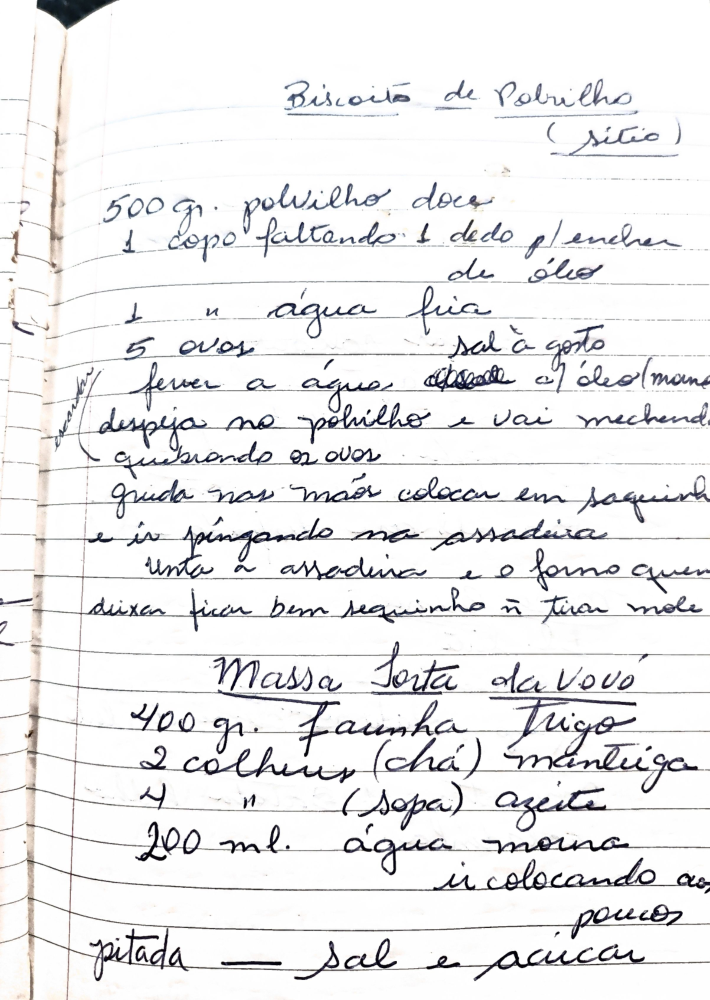 Biscoito de Polvilho
(sítio)
500 gr. polvilho doce
1 copo faltando 1 dedo p/ encher
de óleo
1 " água fria
5 ovos sal à gosto
ferver a água c/ óleo (morna
despeja no polvilho e vai mechend
quebrando os ovos
escaldar
gruda nas mãos colocar em saquinh
e ir pingando na assadeira
unta a assadeira e o forno quen
deixar ficar bem sequinho ñ tirar mole
Massa Torta da Vovó
400 gr. farinha Trigo
2 colheres (chá) manteiga
4 " (sopa) azeite
200 ml. água morna
ir colocando aos
poucos
pitada — sal e açúcar